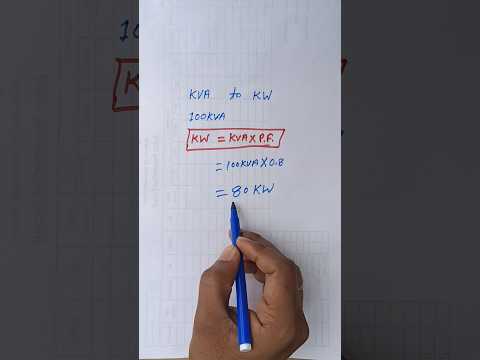 KVA to KW
100KVA
KW = KVA X P.F.
= 100KVA X 0.8
= 80 KW